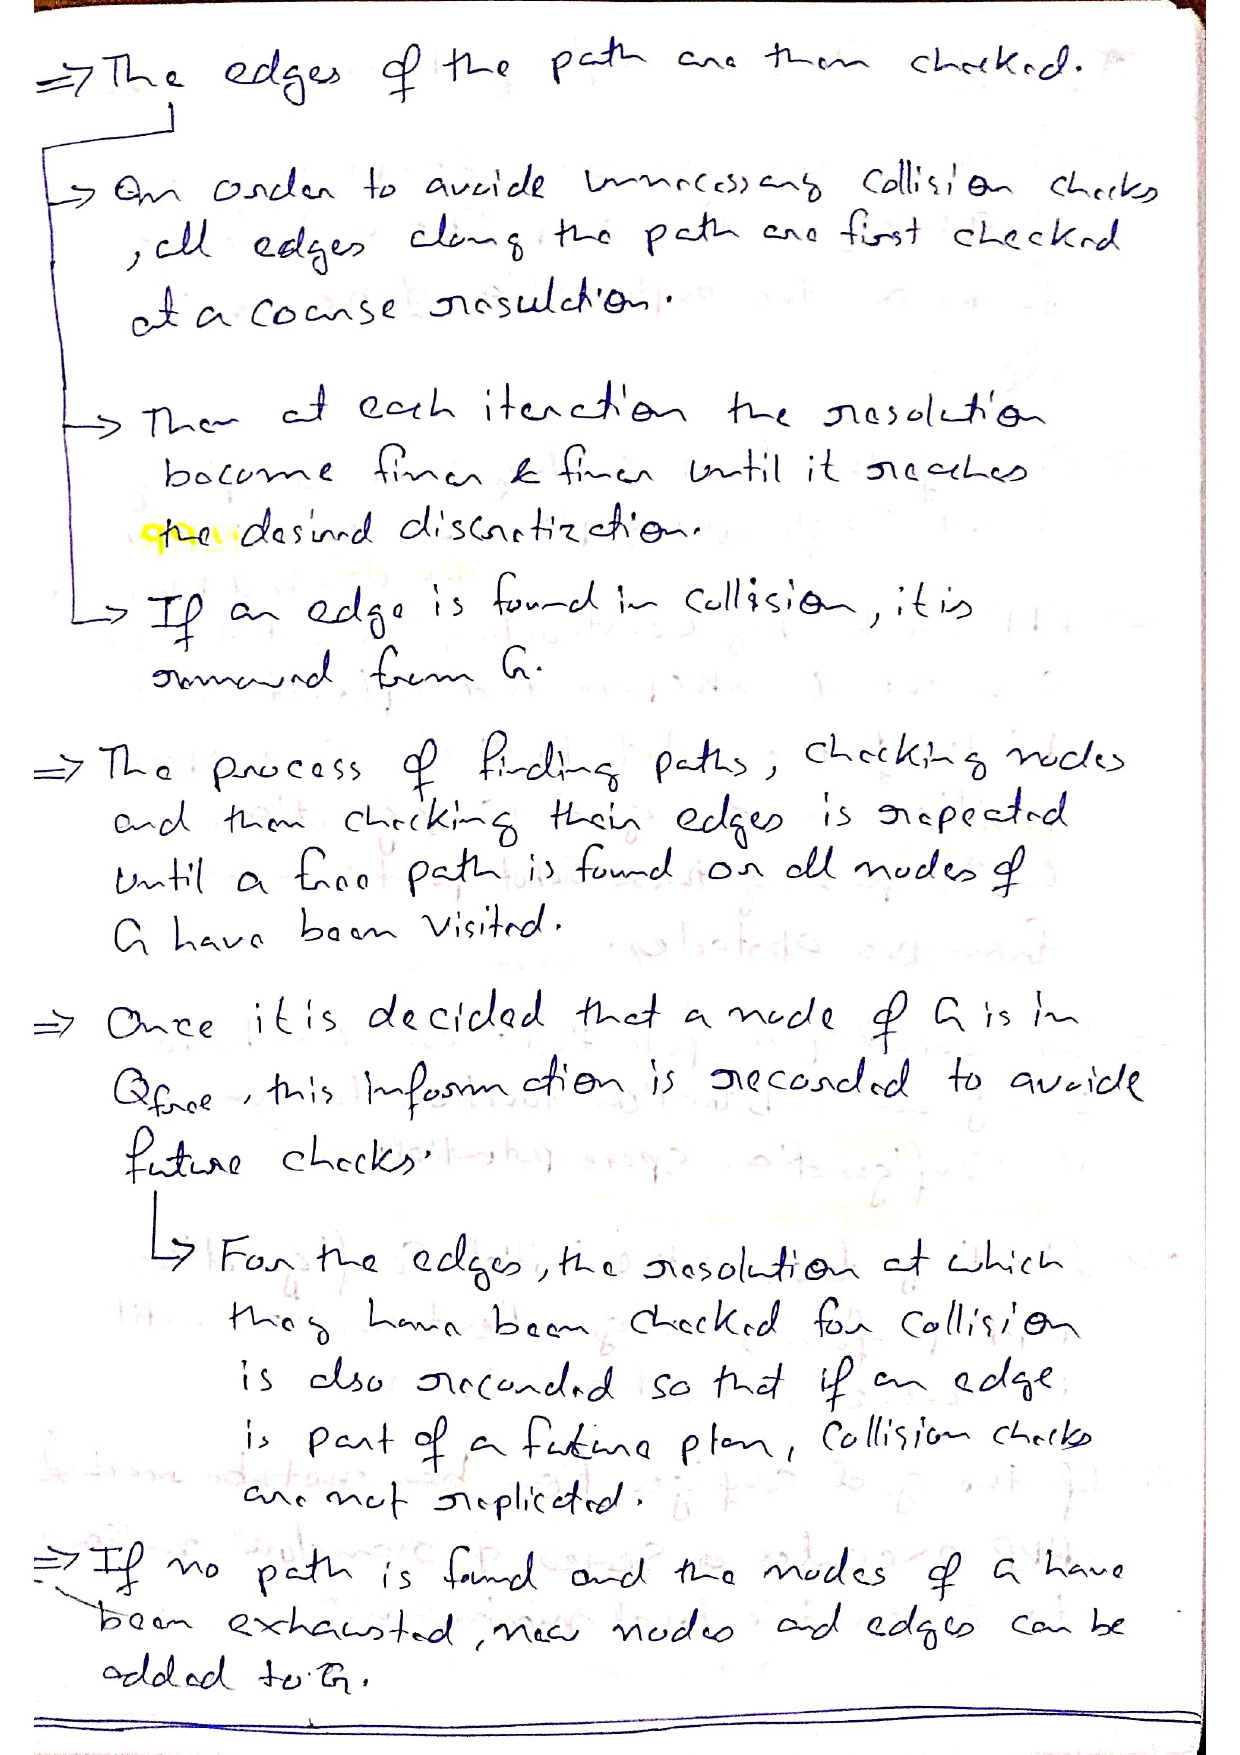 ⇒ The edges of the path are then checked.
→ In order to avoide unnecessary collision checks
, all edges along the path are first checked
at a coarse resulution.
→ Then at each iteration the resolution
become finer & finer until it reaches
the desired discretization.
→ If an edge is found in collision, it is
removed from G.
⇒ The process of finding paths, checking nodes
and then checking their edges is repeated
until a free path is found or all nodes of
G have been visited.
⇒ Once it is decided that a node of G is in
Qfree, this information is recorded to avoide
future checks.
↳ For the edges, the resolution at which
they have been checked for collision
is also recorded so that if an edge
is part of a future plan, collision checks
are not replicated.
⇒ If no path is found and the nodes of G have
been exhausted, new nodes and edges can be
added to G.